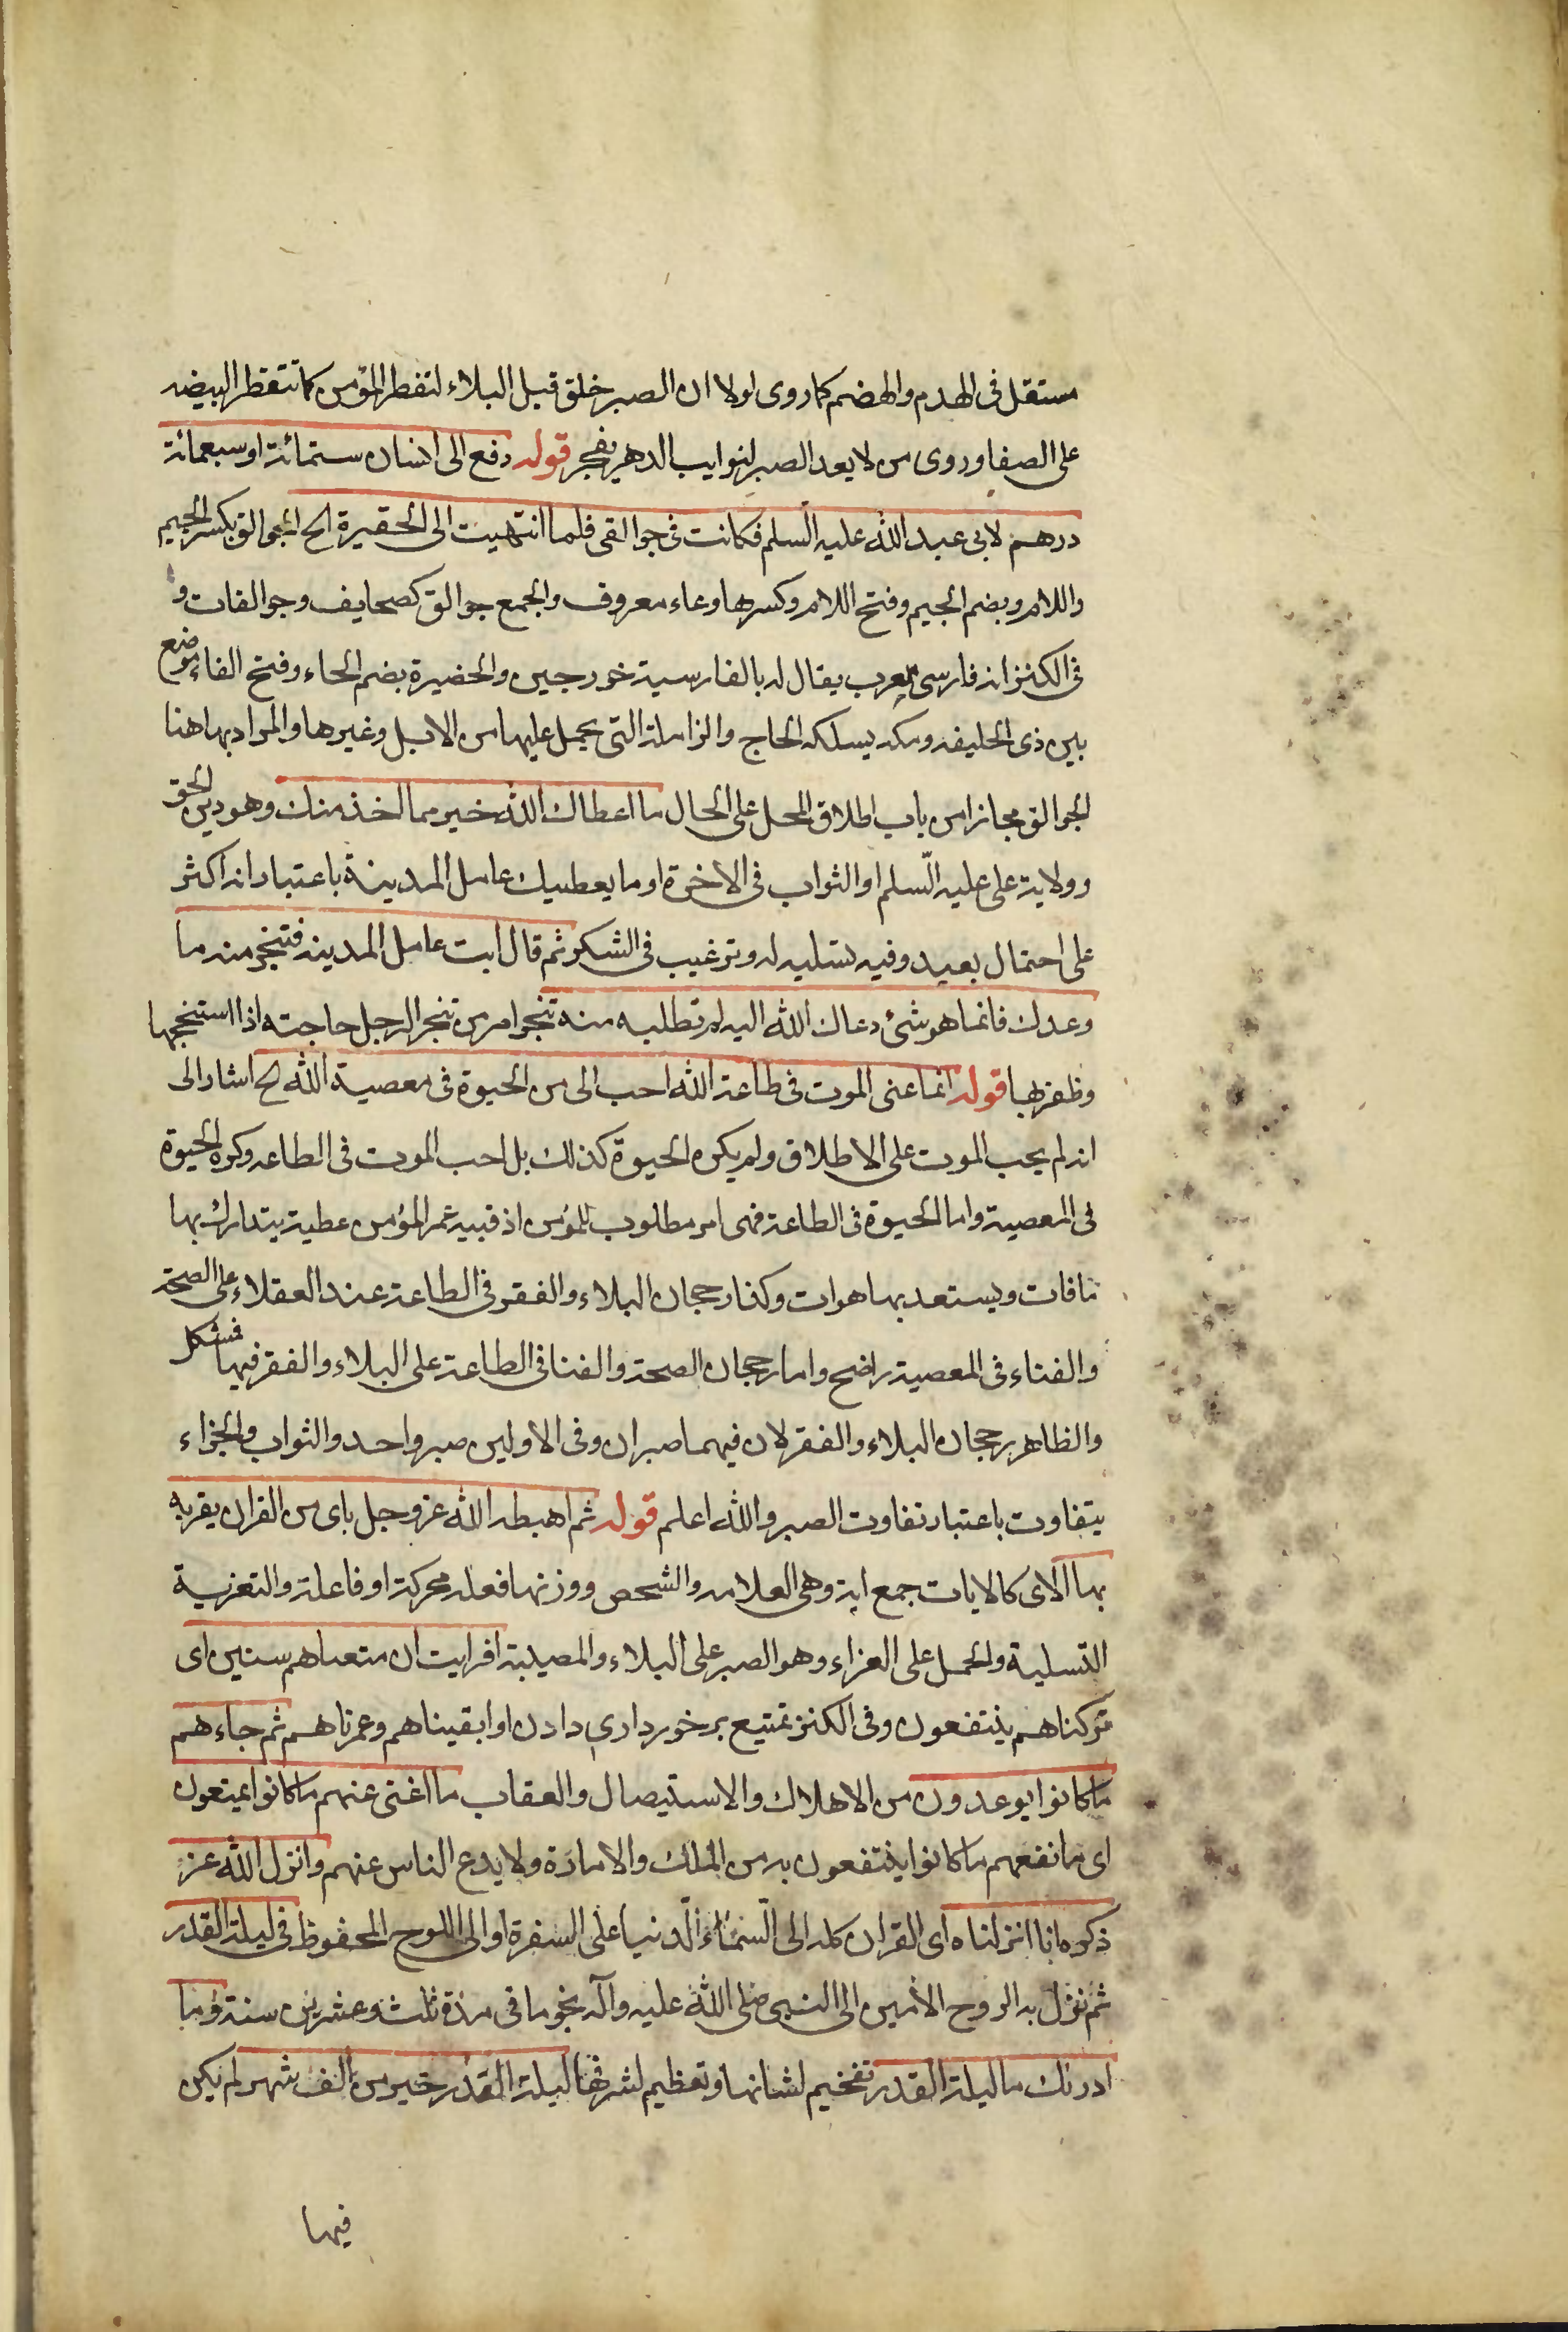 مستقل فى الهدم والهضم كما روى لولا ان الصبر خلق قبل البلاء لتفطر المؤمن كما تتفطر البيضه
على الصفا وروى من لا يعد الصبر لنوايب الدهر يفجر قوله دفع الى انسان ستمائة او سبعمائة
درهم لابى عبد الله عليه السلم فكانت فى جوالقى فلما انتهيت الى الحفيرة الح الجوالق بكسر الجيم
واللام وبضم الجيم وفتح اللام وكسرها وعاء معروف والجمع جوالق كصحايف وجوالقات و
فى الكنز انه فارسى معرب يقال له بالفارسية خورجين والحضيرة بضم الحاء وفتح الفاء موضع
بين ذى الحليفه ومكه يسلكه الحاج والزاملة التى يحمل عليها من الابل وغيرها والمراد بها هنا
الجوالق مجازا من باب اطلاق المحل على الحال ما اعطاك الله خير مما اخذ منك وهو دين الحق
وولاية على عليه السلم او الثواب فى الاخرة او ما يعطيك عامل المدينة باعتبار انه اكثر
على احتمال بعيد وفيه تسليه له وترغيب فى الشكر ثم قال ايت عامل المدينه فتنجز منه ما
وعدك فانما هو شئ دعاك الله اليه لم تطلبه منه تنجز امر من تنجز الرجل حاجته اذا استنجحها
وظفر بها قوله انما عنى الموت فى طاعة الله احب الى من الحيوة فى معصية الله لح اشار الى
انه لم يحب الموت على الاطلاق ولم يكره الحيوة كذلك بل احب الموت فى الطاعه وكره الحيوة
فى المعصية واما الحيوة فى الطاعة فهى امر مطلوب للمؤمن اذ قبيه عمر المؤمن عطية يتدارك بها
مافات ويستعد بها هوات وكذا رجحان البلاء والفقر فى الطاعة عند العقلاء على الصحة
والغناء فى المعصية راضح واما رجحان الصحة والغنا فى الطاعة على البلاء والفقر فيها فمشكل
والظاهر رجحان البلاء والفقر لان فيهما صبران وفى الاولين صبر واحد والثواب والجزاء
يتفاوت باعتبار تفاوت الصبر والله اعلم قوله ثم اهبط الله عز وجل باى من القران يعزيه
بها الاى كالايات جمع اية وهى العلامه والشخص ووزنها فعله محركة او فاعلة والتعزية
التسلية والحمل على العزاء وهو الصبر على البلاء والمصيبة افرايت ان متعناهم سنين اى
تركناهم ينتفعون وفى الكنز تمتيع برخوردارى دادن او ابقيناهم وعمرناهم ثم جاءهم
ما كانوا يوعدون من الاهلاك والاستيصال والعقاب ما اغنى عنهم ما كانوا يمتعون
اى ما نفعهم ما كانوا ينتفعون به من الملك والامارة ولا يدع الناس عنهم وانزل الله عز
ذكره انا انزلناه اى القران كله الى السماء الدنيا على السفرة او الى اللوح المحفوظ فى ليلة القدر
ثم نزل به الروح الامين الى النبى صلى الله عليه وآله نجوما فى مدة ثلث وعشرين سنة وما
ادرنك ما ليلة القدر تفخيم لشانها وتعظيم لشرفها ليلة القدر خير من الف شهر لم يكن
فيها